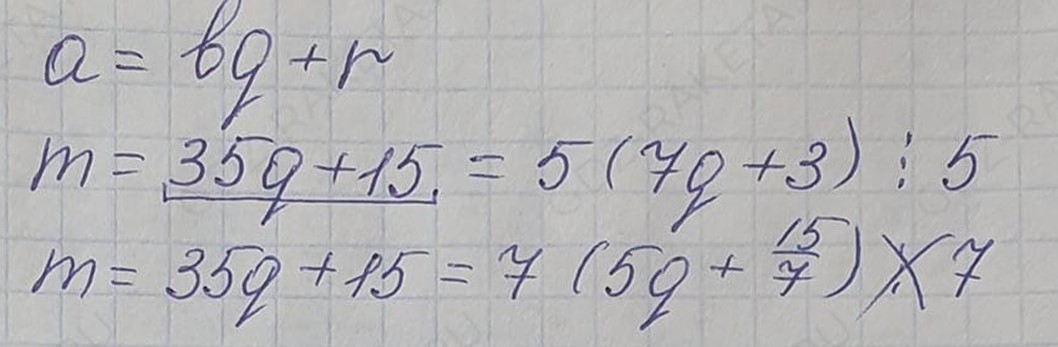 a = bq + r
m = 35q + 15 = 5 (7q + 3) ⋮ 5
m = 35q + 15 = 7 (5q + 15/7) ⋮̸ 7